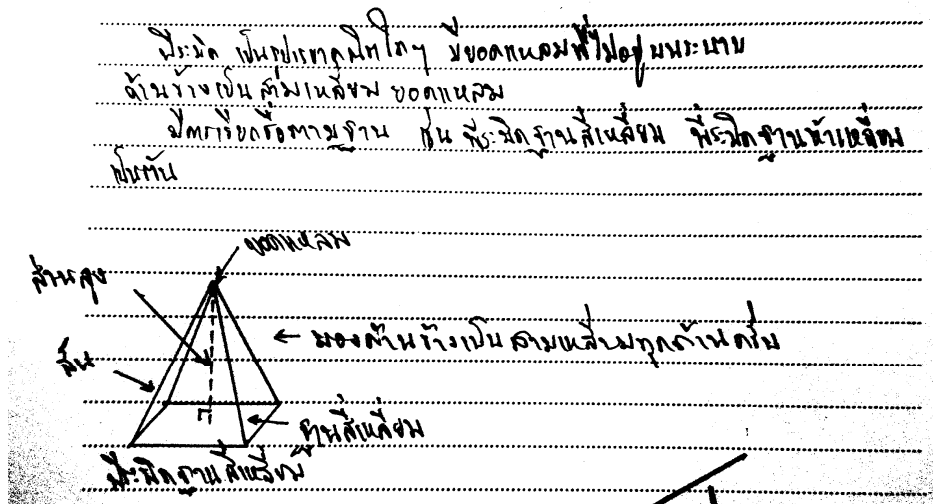 พีระมิด เป็นรูปเรขาคณิตใดๆ มียอดแหลมที่ไม่อยู่บนระนาบ
ด้านข้างเป็นสามเหลี่ยม ยอดแหลม
มีการเรียกชื่อตามฐาน เช่น พีระมิดฐานสี่เหลี่ยม พีระมิดฐานห้าเหลี่ยม
เป็นต้น
ยอดแหลม
ส่วนสูง
มองด้านข้างเป็นสามเหลี่ยมทุกด้านครับ
สัน
ฐานสี่เหลี่ยม
พีระมิดฐานสี่เหลี่ยม